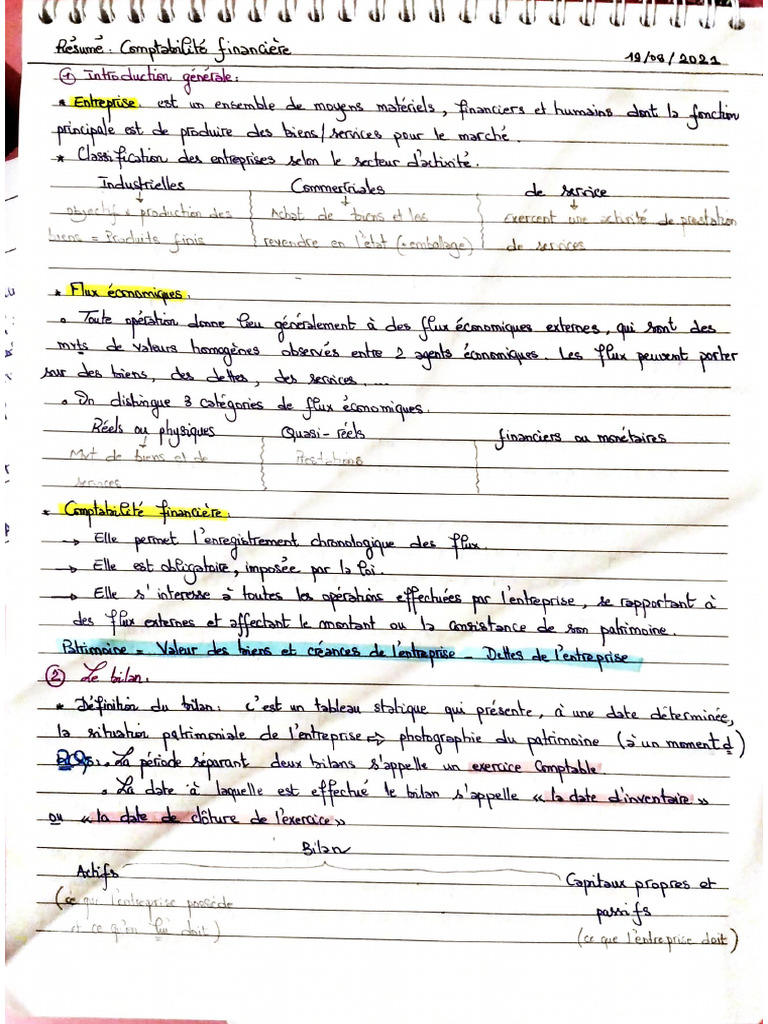 Résumé : Comptabilité financière 19/08/2021
① Introduction générale :
* Entreprise : est un ensemble de moyens matériels, financiers et humains dont la fonction
principale est de produire des biens/services pour le marché.
* Classification des entreprises selon le secteur d'activité.
Industrielles Commerciales de service
objectif : production des Achat de biens et les exercent une activité de prestation
biens = Produits finis revendre en l'état (+emballage) de services
* Flux économiques :
• Toute opération donne lieu généralement à des flux économiques externes, qui sont des
mvts de valeurs homogènes observés entre 2 agents économiques. Les flux peuvent porter
sur des biens, des dettes, des services, ...
• On distingue 3 catégories de flux économiques.
Réels ou physiques Quasi-réels financiers ou monétaires
Mvt de biens et de Prestations
services
* Comptabilité financière :
→ Elle permet l'enregistrement chronologique des flux.
→ Elle est obligatoire, imposée par la loi.
→ Elle s'interesse à toutes les opérations effectuées par l'entreprise, se rapportant à
des flux externes et affectant le montant ou la consistance de son patrimoine.
Patrimoine = Valeur des biens et créances de l'entreprise - Dettes de l'entreprise
② Le bilan.
* Définition du bilan : c'est un tableau statique qui présente, à une date déterminée,
la situation patrimoniale de l'entreprise ⇨ photographie du patrimoine (à un moment d)
• La période séparant deux bilans s'appelle un exercice Comptable.
• La date à laquelle est effectué le bilan s'appelle « la date d'inventaire »
ou « la date de clôture de l'exercice »
Bilan
Actifs Capitaux propres et
(ce qui l'entreprise possède passifs
et ce qu'on lui doit) (ce que l'entreprise doit)